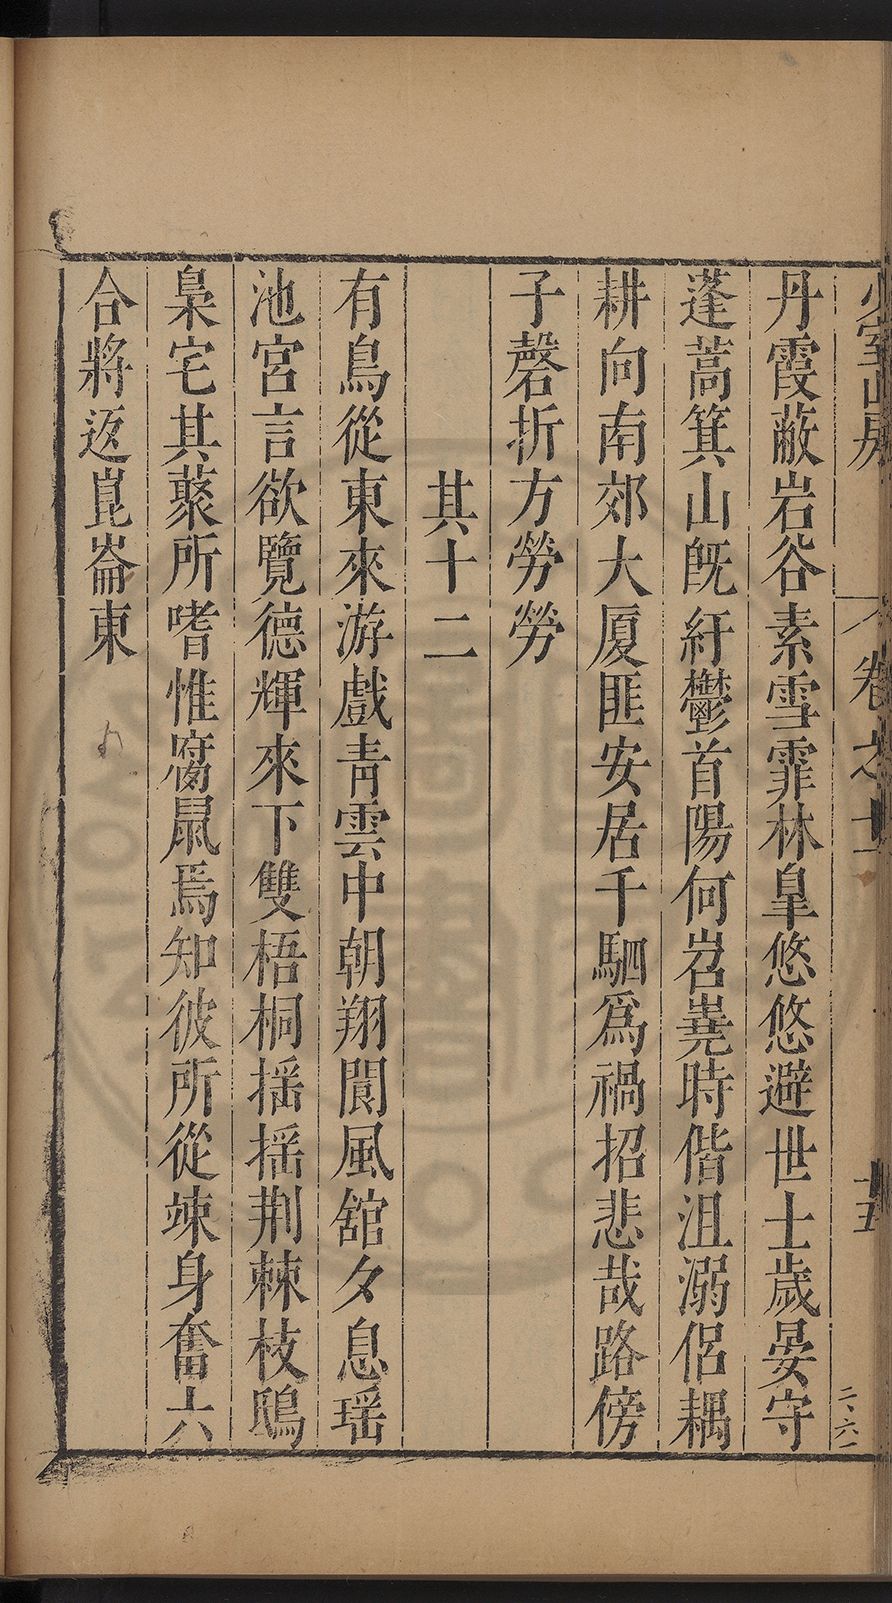 丹霞蔽岩谷素雪霏林臯悠悠避世士歲晏守
蓬蒿箕山旣紆鬱首陽何岧嶤時偕沮溺侶耦
耕向南郊大厦匪安居千駟爲禍招悲哉路傍
子磬折方勞勞
其十二
有鳥從東來游戲靑雲中朝翔閬風舘夕息瑶
池宮言欲覽德輝來下雙梧桐揺揺荆棘枝鴟
梟宅其藂所嗜惟腐鼠焉知彼所從竦身奮六
合將返崑崙東